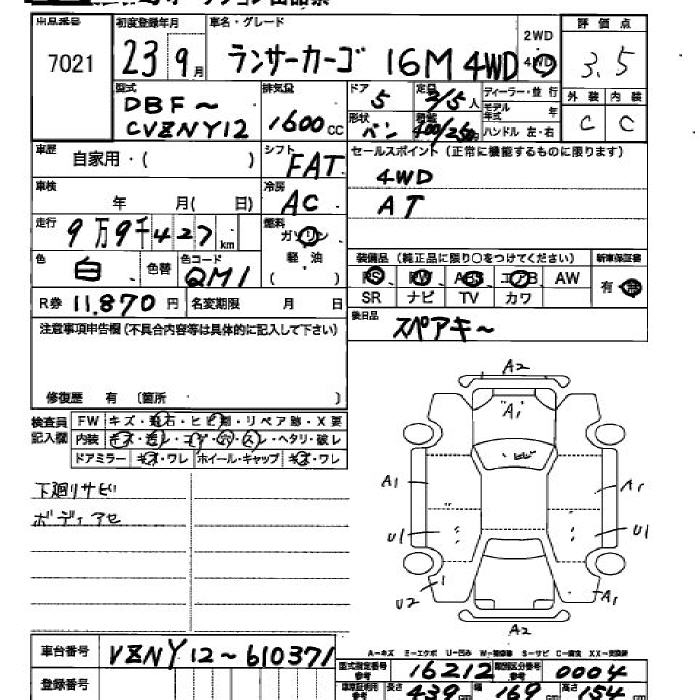 出品番号 7021
初度登録年月 23年 9月
車名・グレード ランサーカーゴ 16M 4WD
2WD
4WD
評価点 3.5
外装 内装
C C
型式 DBF~
CVZNY12
排気量 1600cc
ドア 5
形状 バン
定員 2/5人
積載 400/250
ディーラー・並行
モデル年式 年
ハンドル 左・右
車歴 自家用・( )
シフト FAT
セールスポイント(正常に機能するものに限ります)
4WD
AT
車検 年 月( 日)
冷房 AC
走行 9万9千427km
燃料 ガソリン
軽・油
色 白 色替 色コード QM1
装備品(純正品に限り○をつけてください) 新車保証書
PS PW ABS エアB AW 有・無
SR ナビ TV カワ
R券 11,870円 名変期限 月 日
後日品 スペアキー
注意事項申告欄(不具合内容等は具体的に記入して下さい)
修復歴 有 〔箇所 〕
検査員記入欄
FW キズ・飛石・ヒビ割・リペア跡・X要
内装 キズ・・コゲ・穴・スレ・ヘタリ・破レ
ドアミラー キズ・ワレ ホイール・キャップ キズ・ワレ
下廻リサビ
ボディアセ
A2
"A1"
A1 A1
U1 U1
U2 A1
A2
A-キズ E-エクボ U-凹み W-補修跡 S-サビ C-腐食 XX-交換済
車台番号 VZNY12~610371
型式指定番号 参考 16212 類別区分番号 参考 0004
登録番号
車庫証明用 参考 長さ 439 cm 幅 169 cm 高さ 154 cm